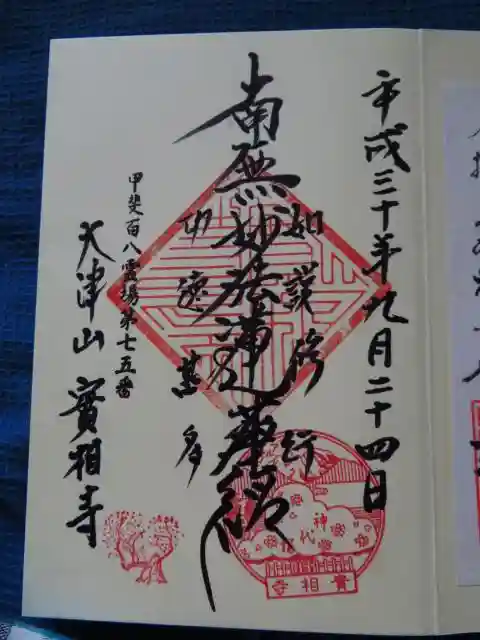 平成三十年九月二十四日
如説修行
南無妙法蓮華経
功徳甚多
甲斐百八霊場第七五番
大津山 實相寺
神代桜
實相寺